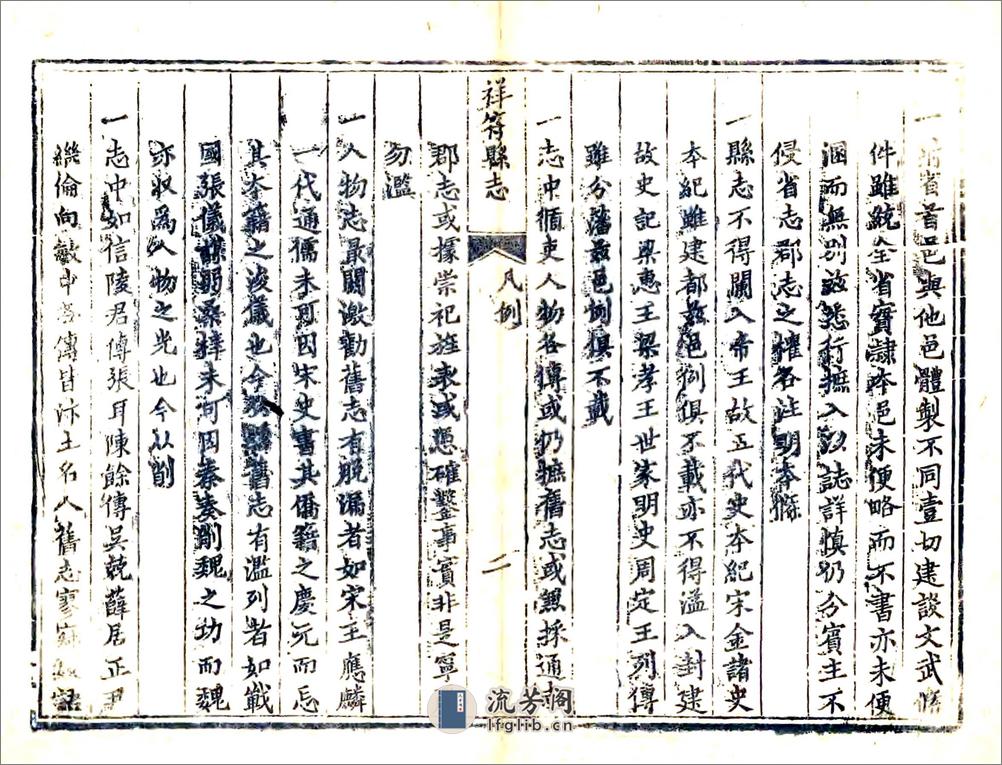 一 省首邑與他邑體製不同壹切建設文武條
件雖統全省實隸本邑未便略而不書亦未便
溷而無別茲悉行摭入以誌詳慎仍分賓主不
侵省志郡志之權各註明本條
一縣志不得闌入帝王故五代史本紀宋金諸史
本紀雖建都茲邑例俱不載亦不得溢入封建
故史記梁惠王梁孝王世家明史周定王列傳
雖分藩茲邑例俱不載
一志中循吏人物各傳或仍摭舊志或無採通
祥符縣志
凡例
二
郡志或據崇祀旌表或憑確鑿事實非是寧
勿濫
一人物志最關激勸舊志有脫漏者如宋王應麟
一代通儒未可因宋史書其僑籍之慶元而忘
其本籍之浚儀也今 舊志有濫列者如戰
國張儀 桑梓未可因秦 削魏之功而魏
亦収為人物之光也今从削
一志中如信陵君傳張耳陳餘傳吳兢薛居正尹
繼倫向敏中 傳皆汴土名人舊志寥寥
流芳閣
lfglib.cn